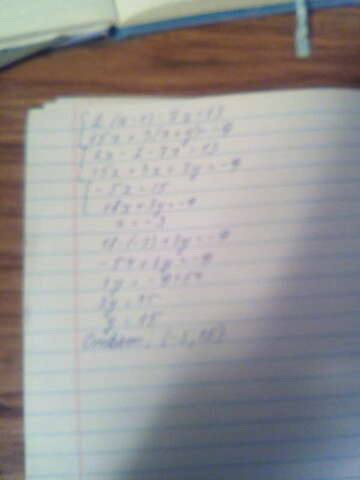 2(x-1)-7x=13
15x+3(x+y)=-9
2x-2-7x=13
15x+3x+3y=-9
-5x=15
18x+3y=-9
x=-3
18·(-3)+3y=-9
-54+3y=-9
3y=-9+54
3y=45
y=15
Ответ: (-3;15)